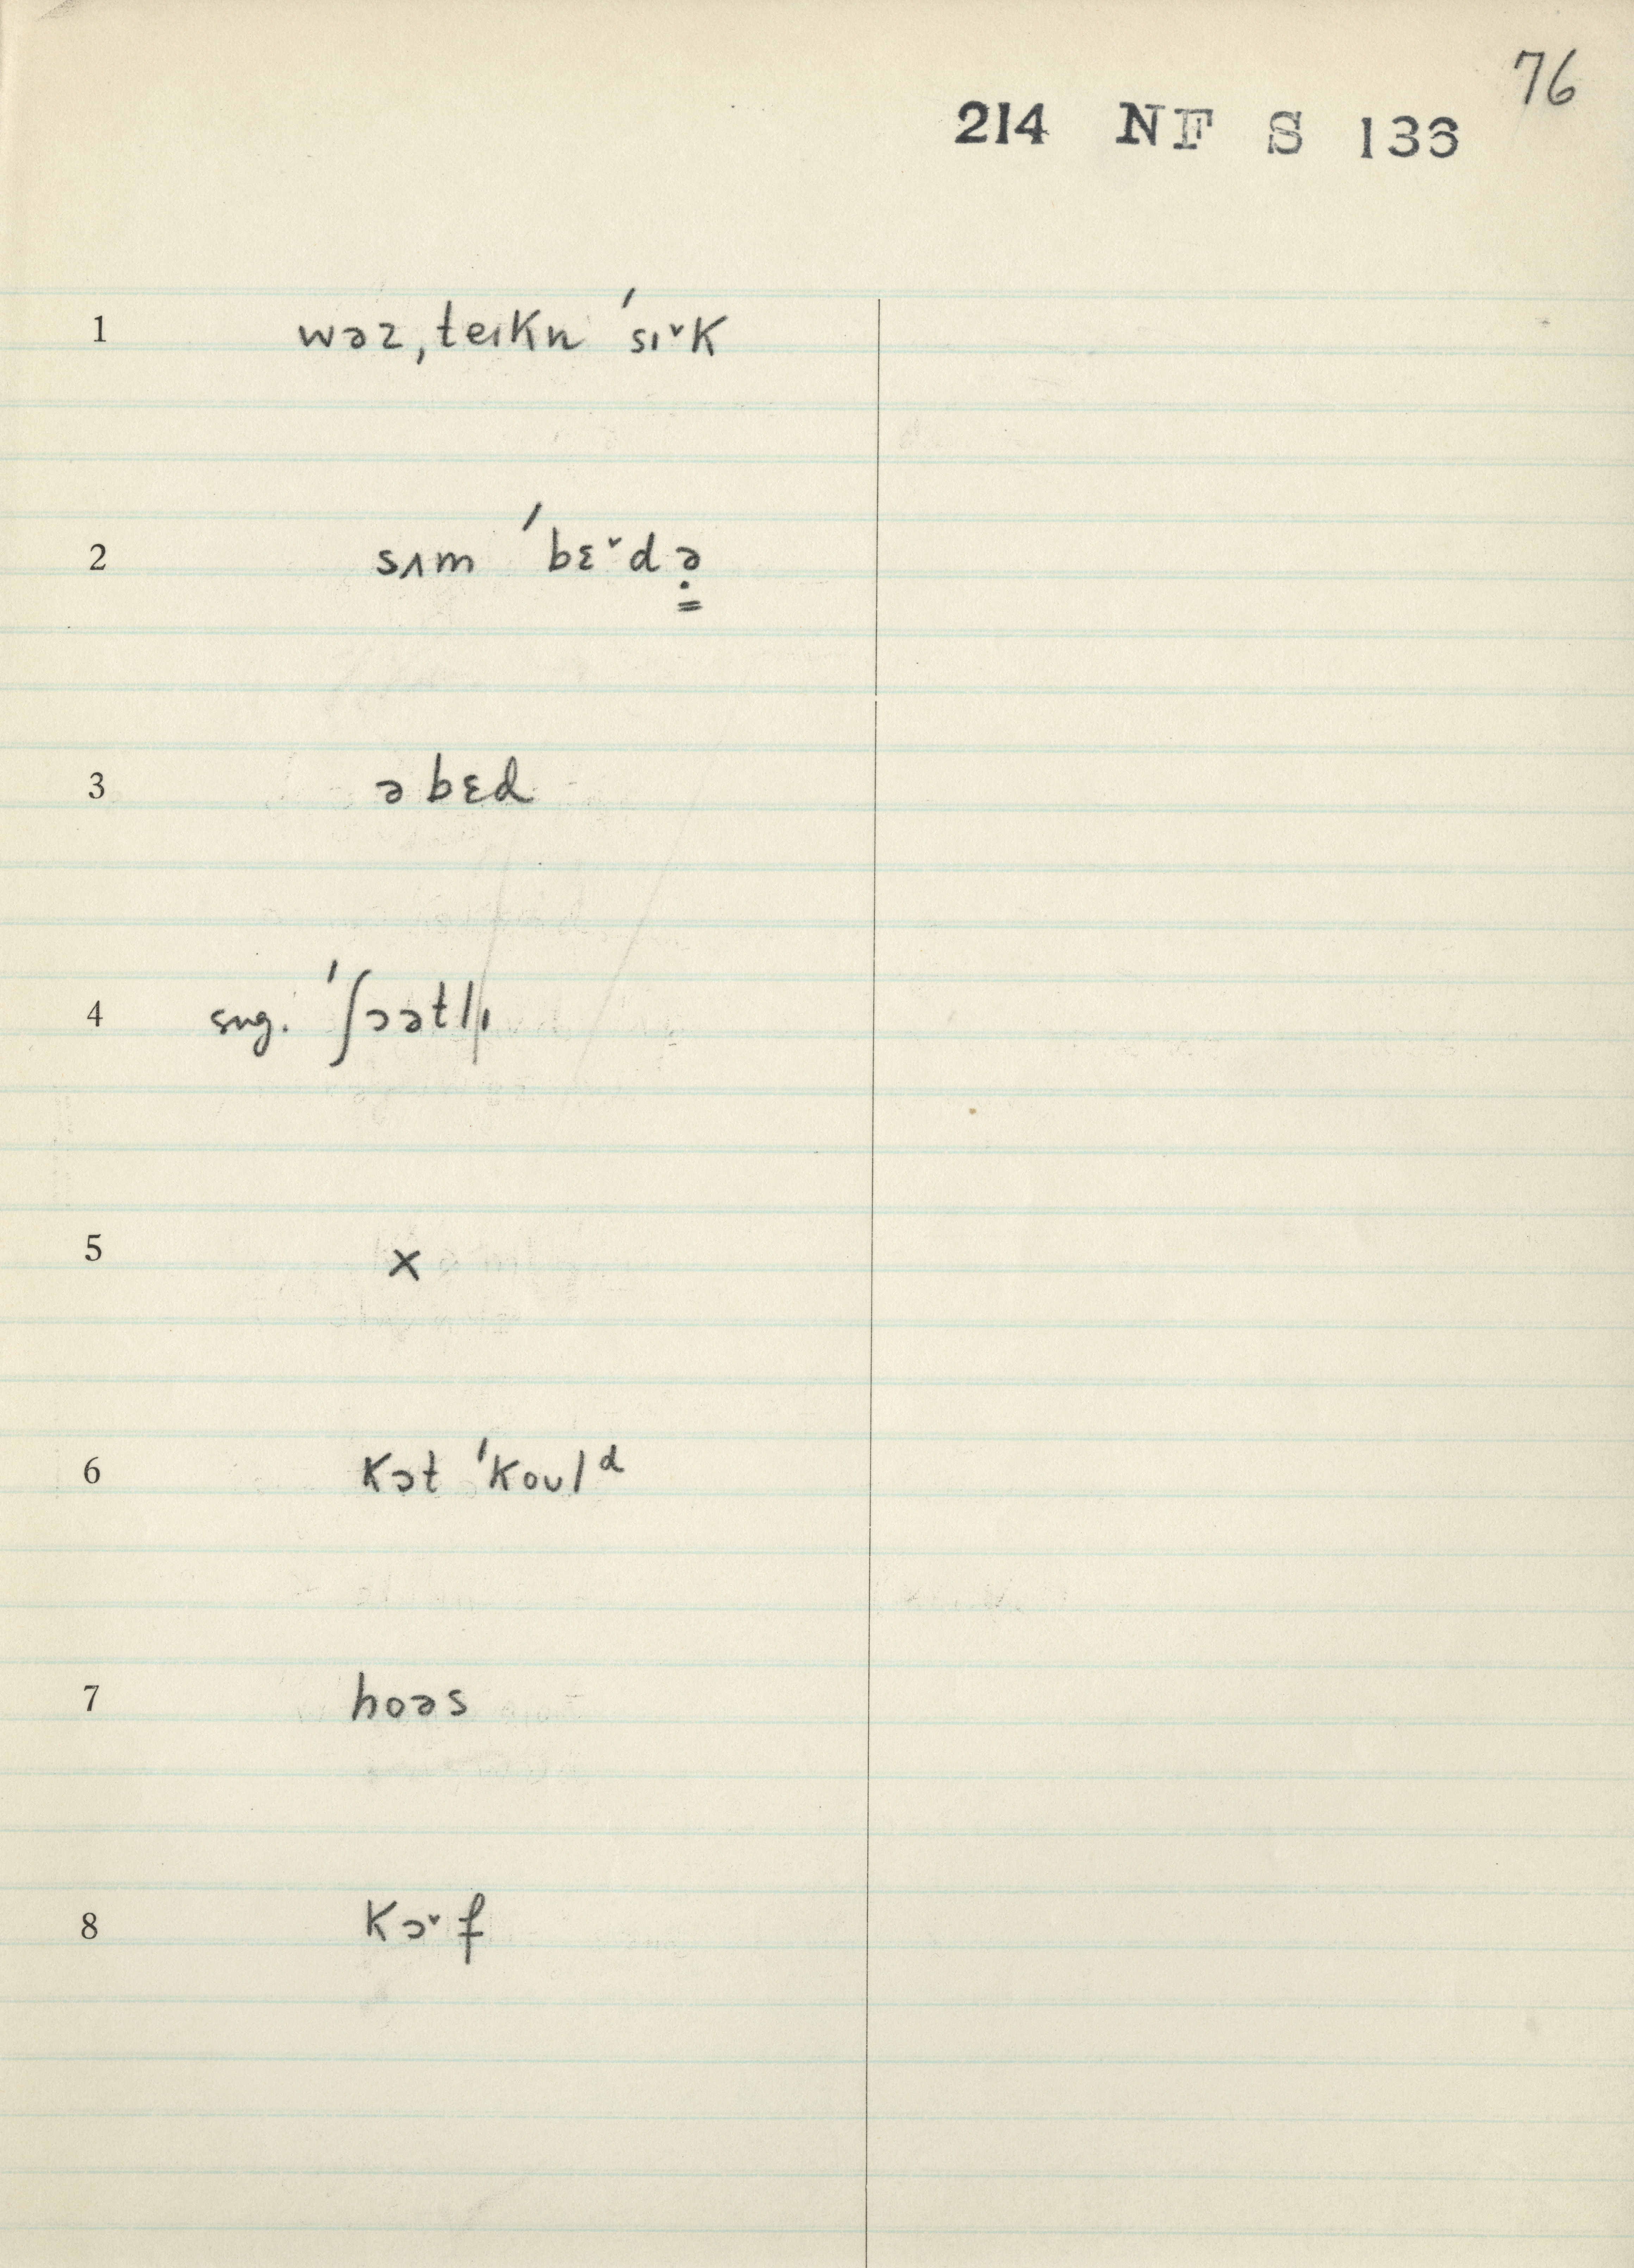 76
214 NF S 136
1 wəz ˌteɪkn ˈsɪ˅k
2 sʌm ˈbɛ˅də̣
3 ə bɛd
4 sug. ˈʃɔətlɪ
5 x
6 kɔt ˈkoʊlᵈ
7 hoəs
8 kɔ˅f